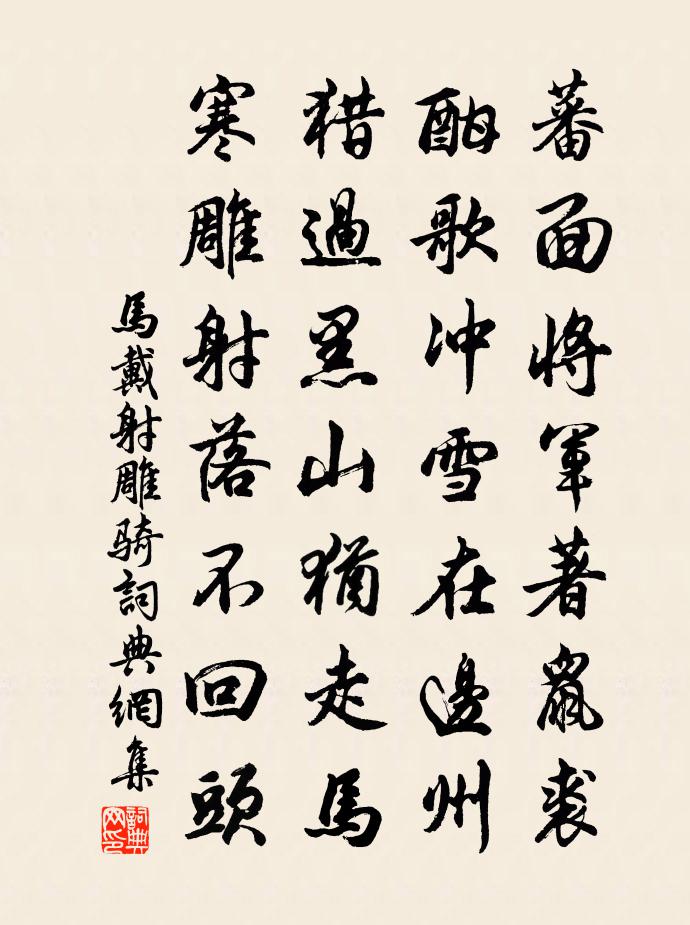 蕃面將軍著鼠裘
酣歌冲雪在邊州
猎過黑山猶走馬
寒雕射落不回頭
馬戴射雕骑詞典網集
詞典网印